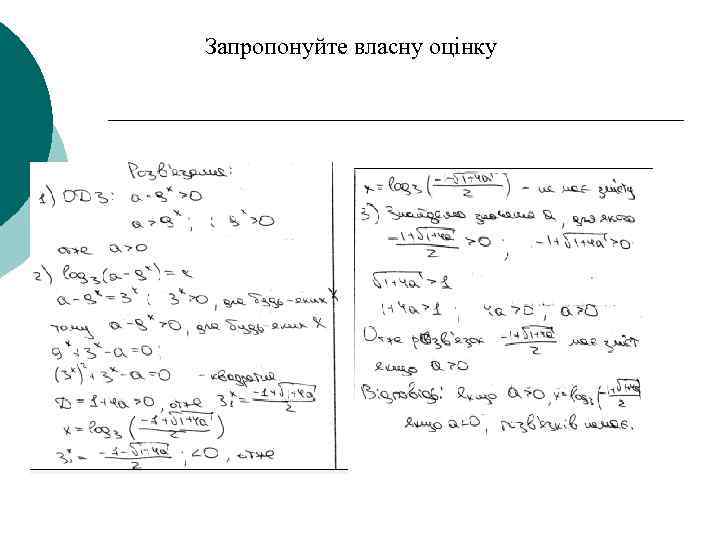 Запропонуйте власну оцінку
Розв'язання:
1) ОДЗ: a - 9^x > 0
a > 9^x ; і 9^x > 0
отже a > 0
2) log₃(a - 9^x) = x
a - 9^x = 3^x ; 3^x > 0, для будь-яких x
тому a - 9^x > 0, для будь-яких x
9^x + 3^x - a = 0;
(3^x)² + 3^x - a = 0 - квадратне
D = 1 + 4a > 0, отже 3₁^x = (-1 + √(1+4a))/2
x = log₃((-1 + √(1+4a))/2)
3₂^x = (-1 - √(1+4a))/2 ; < 0, отже
x = log₃((-1 - √(1+4a))/2) - не має змісту
3) Знайдемо значення a, для якого
(-1 + √(1+4a))/2 > 0 ; -1 + √(1+4a) > 0
√(1+4a) > 1
1 + 4a > 1 ; 4a > 0 ; a > 0
Отже розв'язок (-1 + √(1+4a))/2 має зміст
якщо a > 0
Відповідь: якщо a > 0, x = log₃((-1 + √(1+4a))/2)
якщо розв'язків немає.